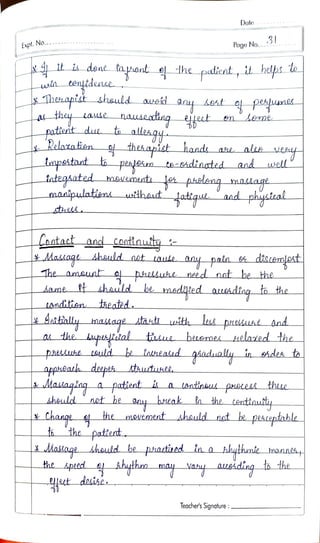 Date
Expt. No.
Page No. 31
* If it is done infront of the patient, it helps to
win confidence.
* Therapist should avoid any sort of perfumes
as they cause nauseating effect on some
patient due to allergy.
* Relaxation of therapist hands are also very
important to perform co-ordinated and well
integrated movements for prolong massage
manipulations without fatigue and physical
stress.
Contact and continuity :-
* Massage should not cause any pain or discomfort
The amount of pressure need not be the
same It should be modified according to the
condition treated.
* Initially massage starts with less pressure and
as the superficial tissue becomes relaxed the
pressure could be increased gradually in order to
approach deeper structures.
* Massaging a patient is a continous process there
should not be any break in the continuity
* Change of the movement should not be perceptable
to the patient.
* Massage should be practised in a rhythmic manner,
the speed of rhythm may vary according to the
effect desire.
Teacher's Signature :